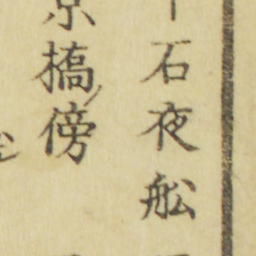 石夜舩
京橋傍